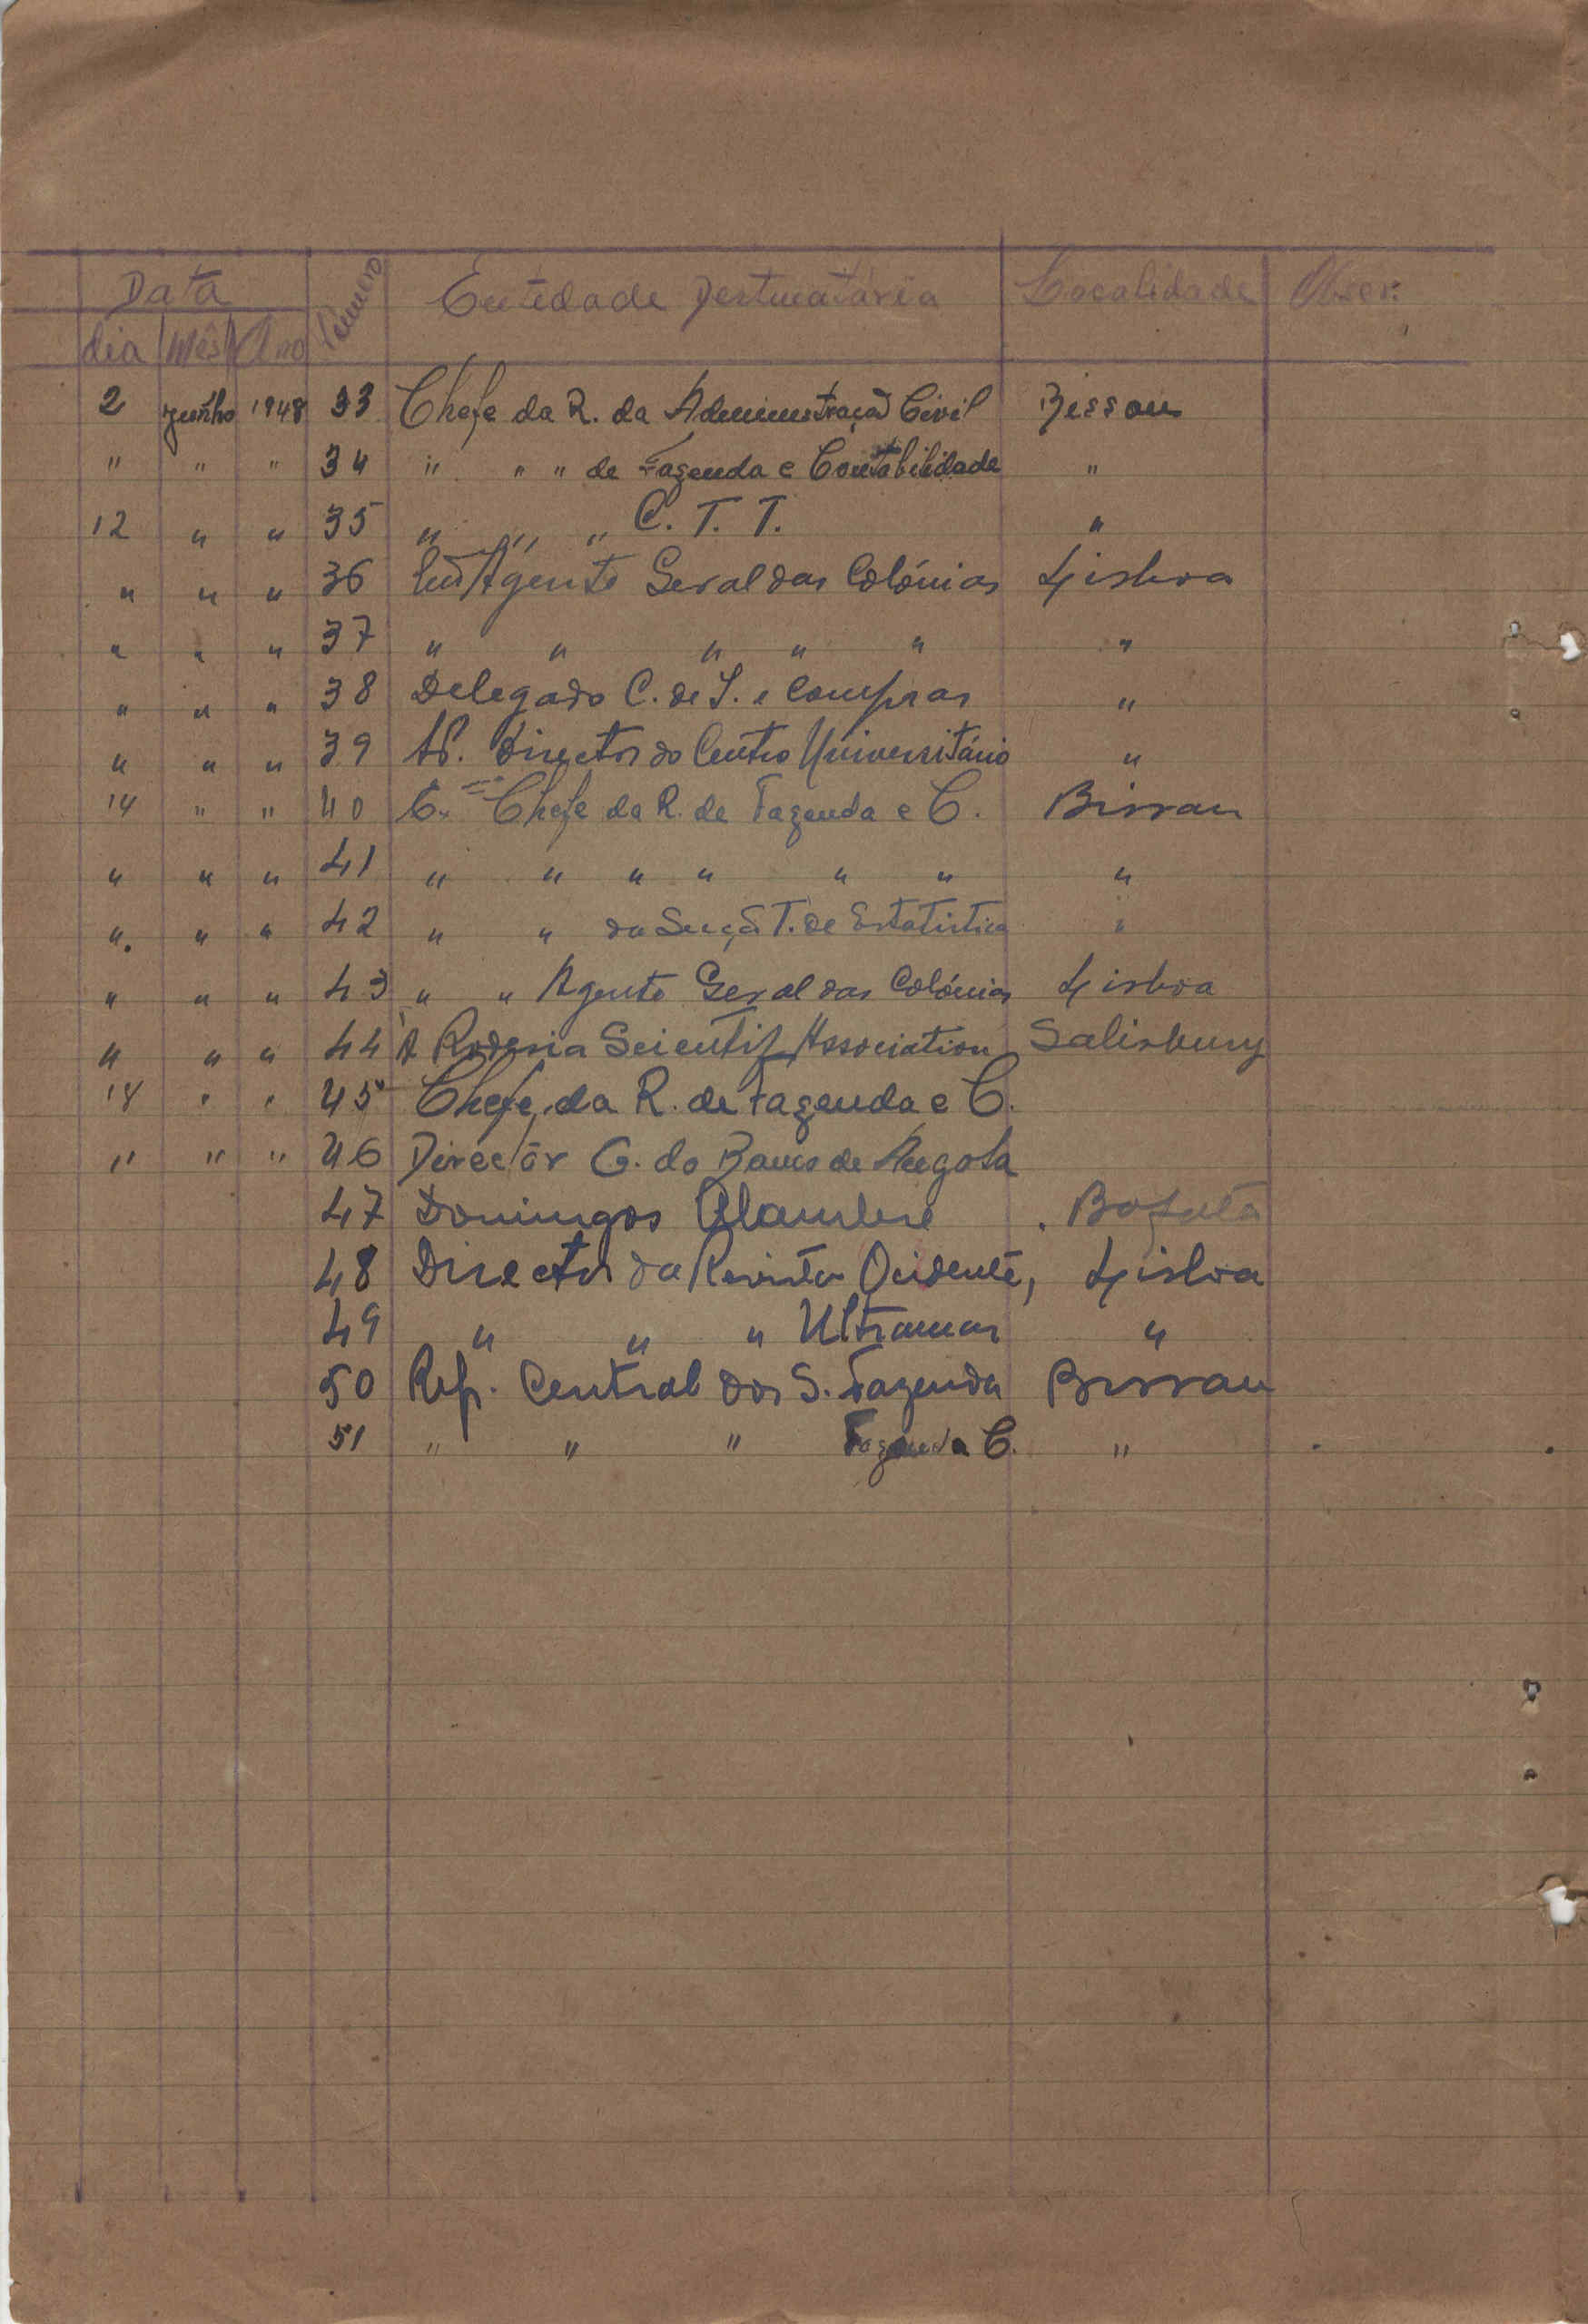 Data Número Entidade Destinatária Localidade Obser.
dia Mês Ano
2 Junho 1948 33 Chefe da R. da Administração Civil Bissau
" " " 34 " " " de Fazenda e Contabilidade "
12 " " 35 " " " C. T. T. "
" " " 36 Agente Geral das Colónias Lisboa
" " " 37 " " " " " "
" " " 38 Delegado C. de I. e Compras "
" " " 39 Director do Centro Universitário "
14 " " 40 Chefe da R. de Fazenda e C. Bissau
" " " 41 " " " " " " "
" " " 42 " " da Secçã T. de Estatistica "
" " " 43 " " Agente Geral das Colónias Lisboa
" " " 44 À Rodesia Scientif Association Salisbury
18 " " 45 Chefe da R. de Fazenda e C.
" " " 46 Directôr G. do Banco de Angola
47 Domingos
48 Director da Revista Ocidente, Lisboa
49 " " " Ultramar "
50 Rep. Central dos S. Fazenda Bissau
51 " " " Fazenda C. "